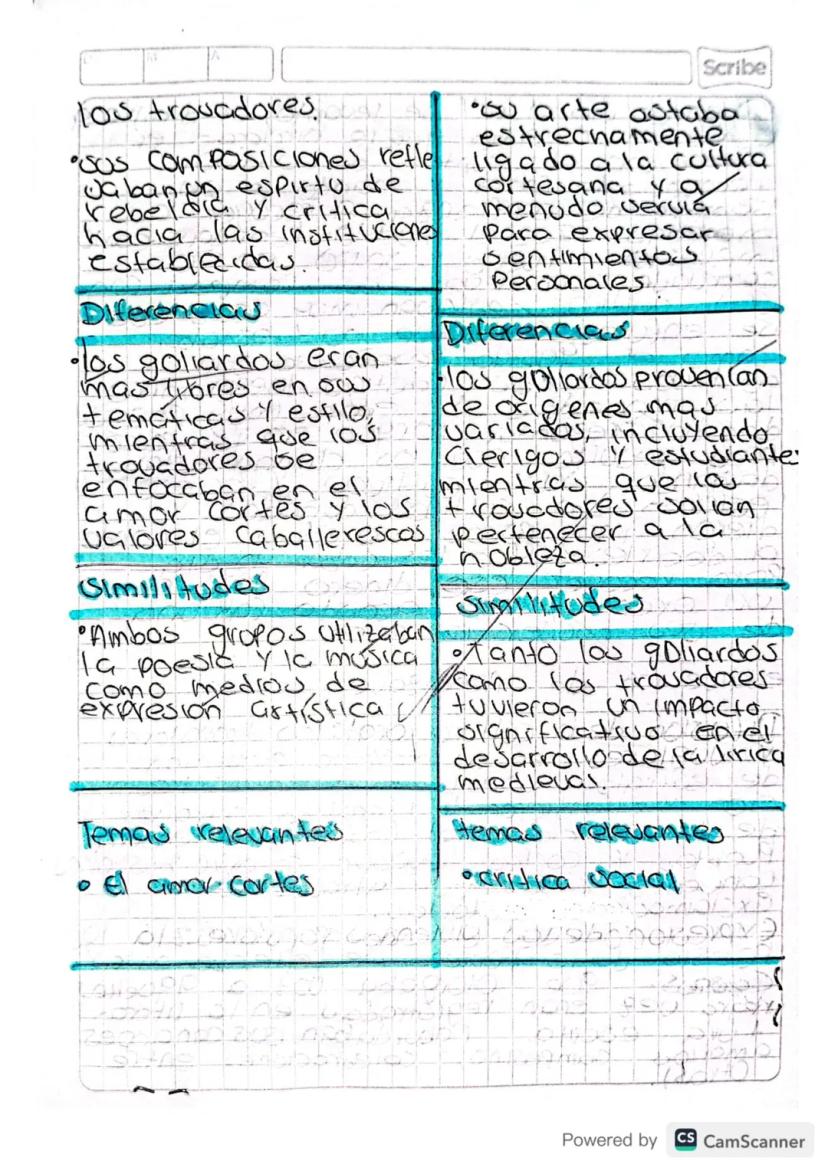 Scribe
los trovadores.
•sus composiciones refle
jaban un espirtu de
rebeldia y critica
hacia las instituciones
establecidas.
Diferencias
•los goliardos eran
mas libres en sus
temáticas y estilo,
mientras que los
trovadores se
enfocaban en el
amor cortes y los
valores caballerescos
Similitudes
•Ambos grupos utilizaban
la poesia y la música
como medios de
expresión artística
Temas relevantes
• El amor cortes
•su arte astaba
estrechamente
ligado a la cultura
cortesana y a
menudo servia
para expresar
sentimientos
Personales.
Diferencias
•los goliardos provenian
de origenes mas
variados, incluyendo
Clerigos y estudiante
mientras que los
trovadores solian
pertenecer a la
nobleza.
Similitudes
•Tanto los goliardos
como los trovadores
tuvieron un impacto
significativo en el
desarrollo de la lirica
medieval.
temas relevantes
•critica social
Powered by CS CamScanner